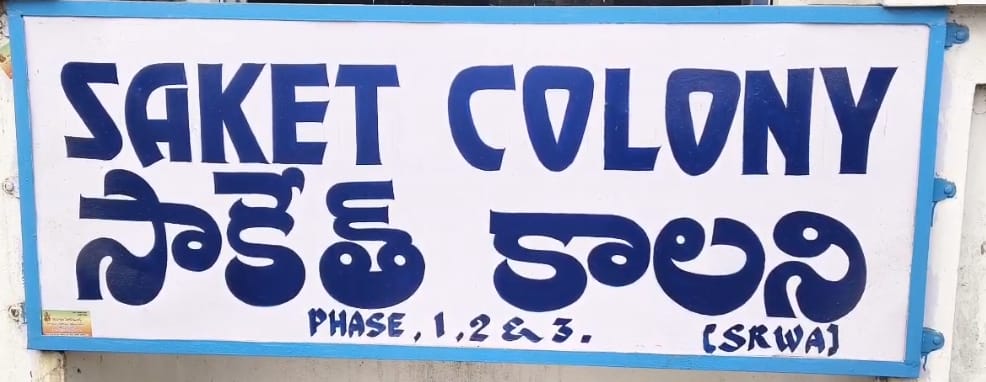 SAKET COLONY
సాకేత్ కాలని
PHASE, 1, 2 & 3.
[SRWA]